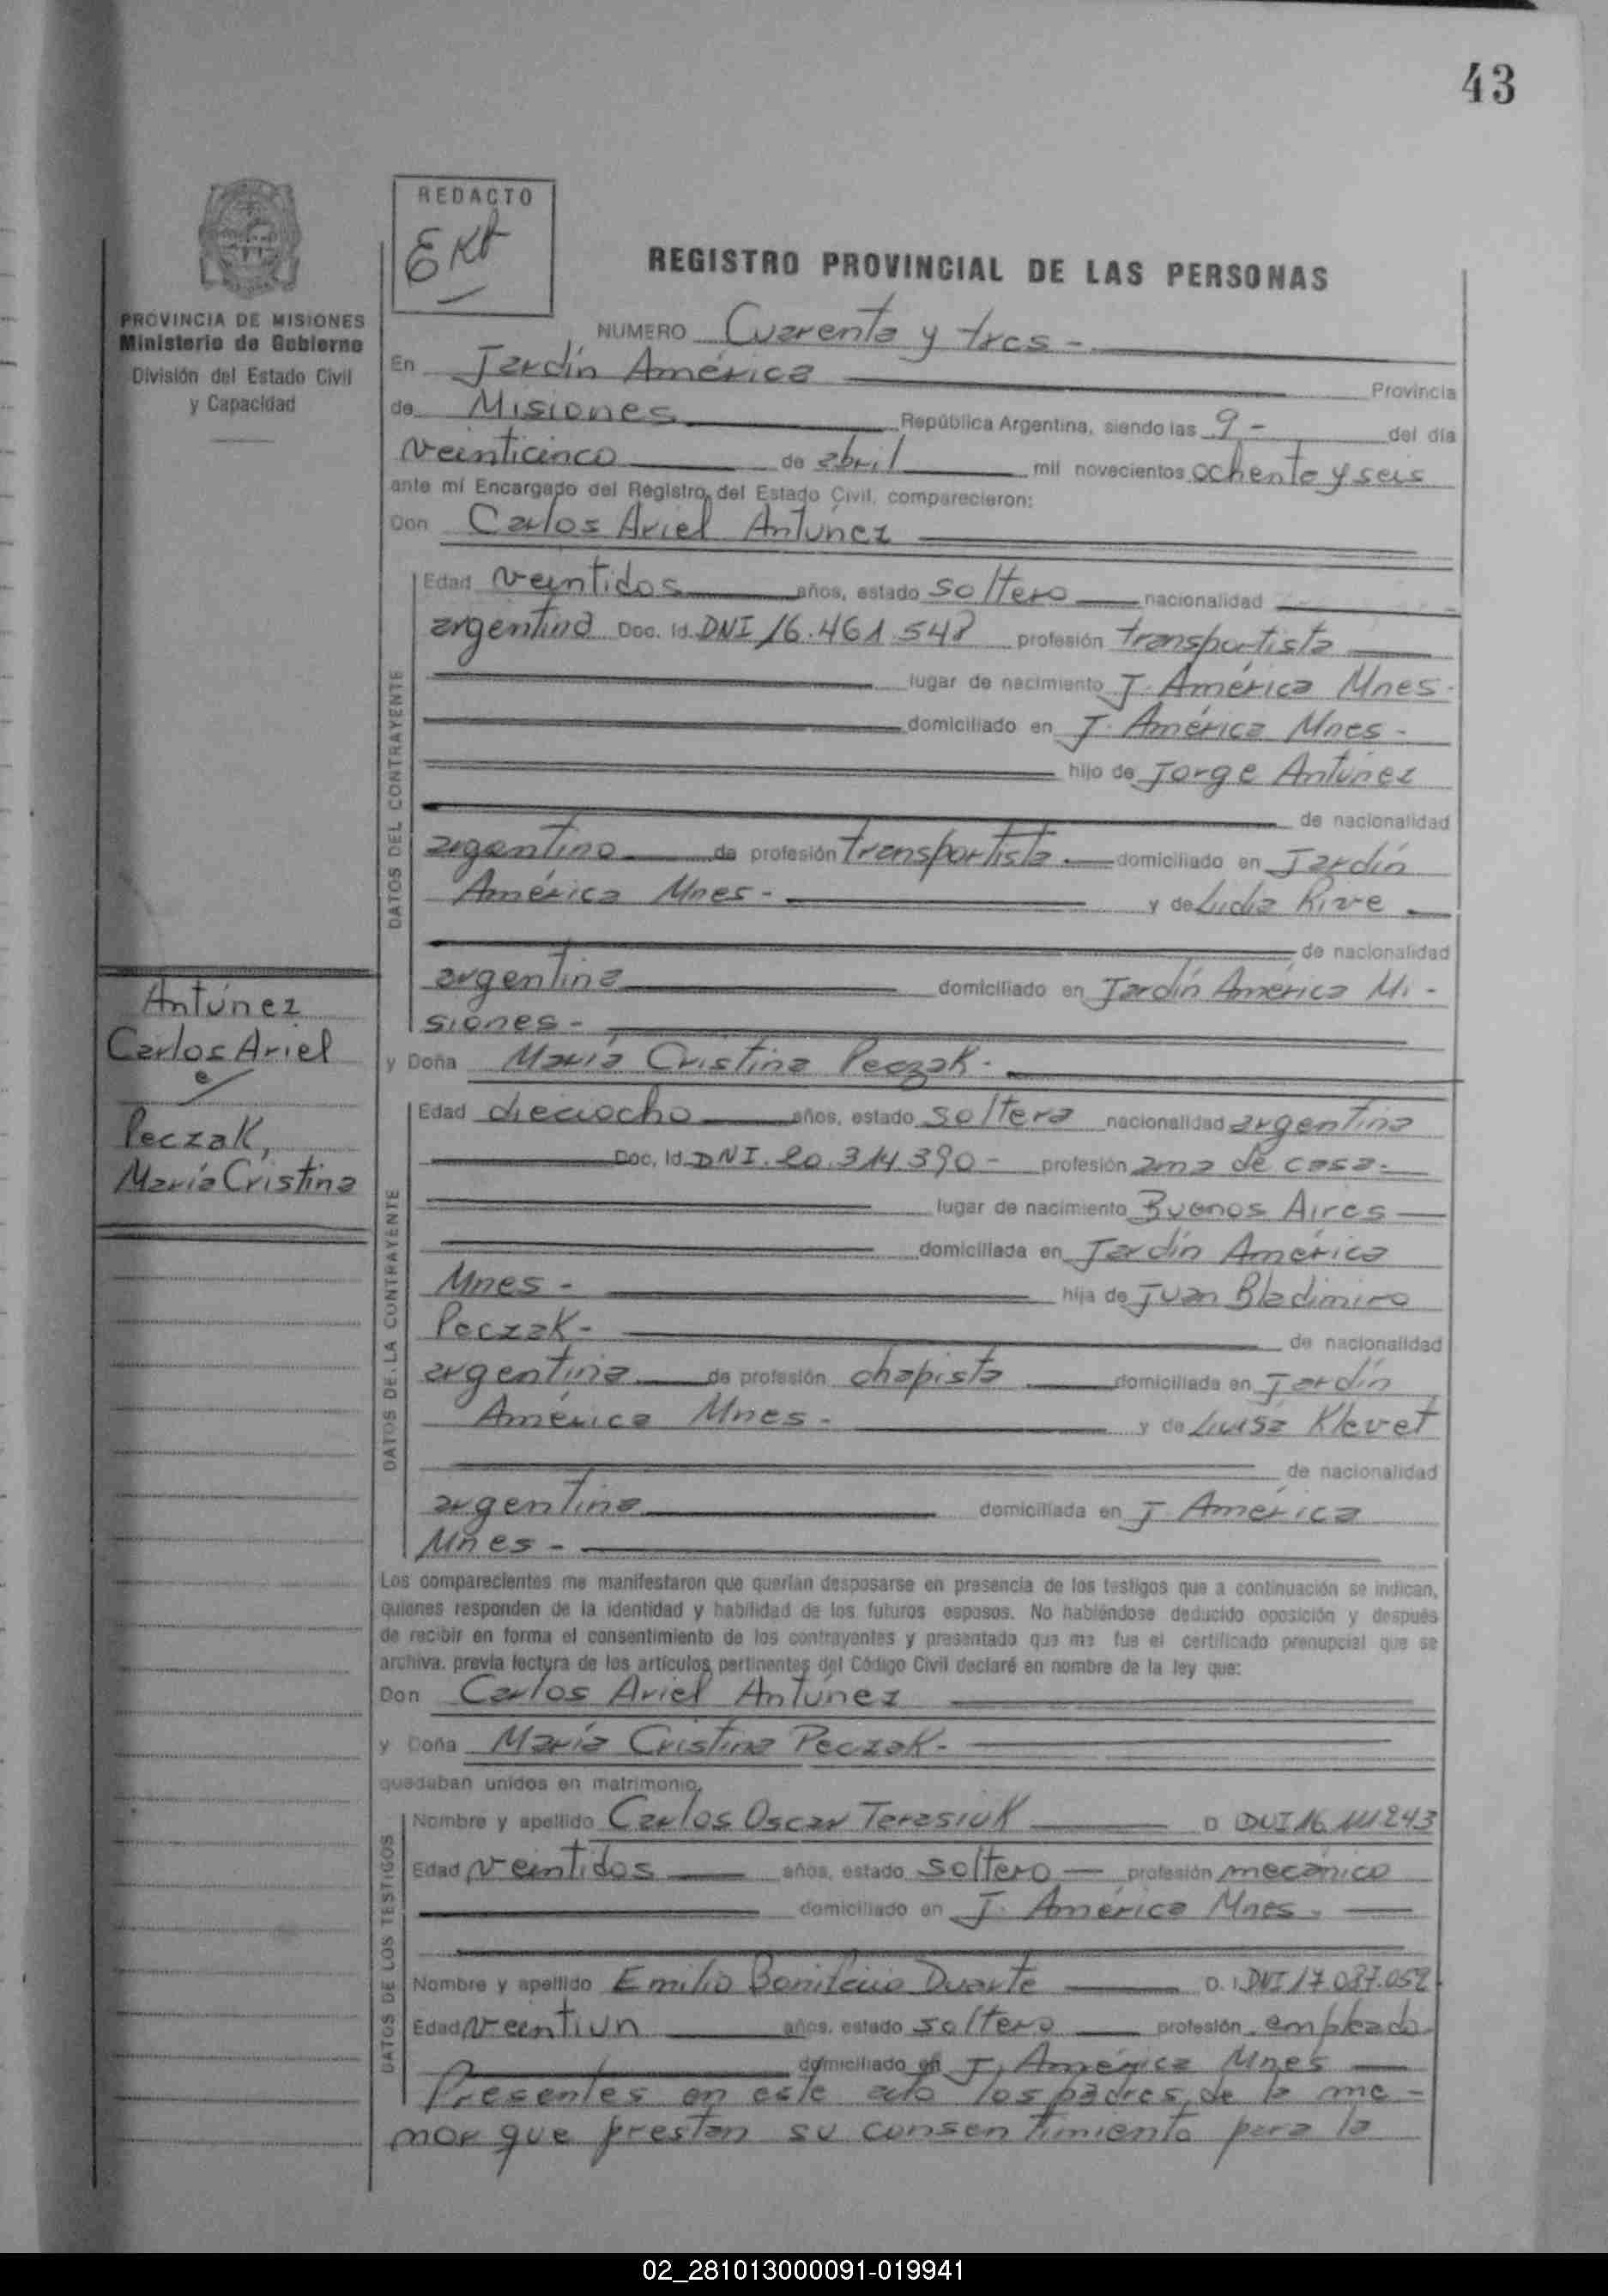 43
REDACTO
REGISTRO PROVINCIAL DE LAS PERSONAS
PROVINCIA DE MISIONES
Ministerio de Gobierno
División del Estado Civil
y Capacidad
NUMERO Cuarenta y tres -
En Jardín América Provincia
de Misiones República Argentina, siendo las 9 - del día
veinticinco de abril mil novecientos ochenta y seis
ante mí Encargado del Registro del Estado Civil, comparecieron:
Don Carlos Ariel Antúnez
Edad veintidos años, estado soltero nacionalidad
argentina Doc. Id. DNI 16.461.548 profesión transportista
lugar de nacimiento J. América Mnes.
domiciliado en J. América Mnes -
hijo de Jorge Antúnez
de nacionalidad
argentino de profesión transportista domiciliado en Jardín
América Mnes - y de Lidia
de nacionalidad
argentina domiciliado en Jardín América Mi -
siones -
Antúnez
Carlos Ariel
e
Peczak,
María Cristina
y Doña María Cristina Peczak -
Edad dieciocho años, estado soltera nacionalidad argentina
Doc. Id. DNI. 20.314.390 - profesión ama de casa -
lugar de nacimiento Buenos Aires
domiciliada en Jardín América
Mnes - hija de Juan Bladimiro
Peczak - de nacionalidad
argentina de profesión chapista domiciliada en Jardín
América Mnes - y de Luisa Klevet
de nacionalidad
argentina domiciliada en J. América
Mnes -
DATOS DEL CONTRAYENTE
DATOS DE LA CONTRAYENTE
Los comparecientes me manifestaron que querían desposarse en presencia de los testigos que a continuación se indican,
quienes responden de la identidad y habilidad de los futuros esposos. No habiéndose deducido oposición y después
de recibir en forma el consentimiento de los contrayentes y presentado que me fue el certificado prenupcial que se
archiva. previa lectura de los artículos pertinentes del Código Civil declaré en nombre de la ley que:
Don Carlos Ariel Antúnez
y Doña María Cristina Peczak -
quedaban unidos en matrimonio,
Nombre y apellido Carlos Oscar Terasiuk D DNI 16 111 243
Edad veintidos años, estado soltero profesión mecánico
domiciliado en J. América Mnes -
Nombre y apellido Emilio Bonifacio Duarte D. I. DNI 17.037.052
Edad veintiun años, estado soltero profesión empleado
domiciliado en J. América Mnes
DATOS DE LOS TESTIGOS
Presentes en este acto los padres de la me -
nor que prestan su consentimiento para la
02_281013000091-019941